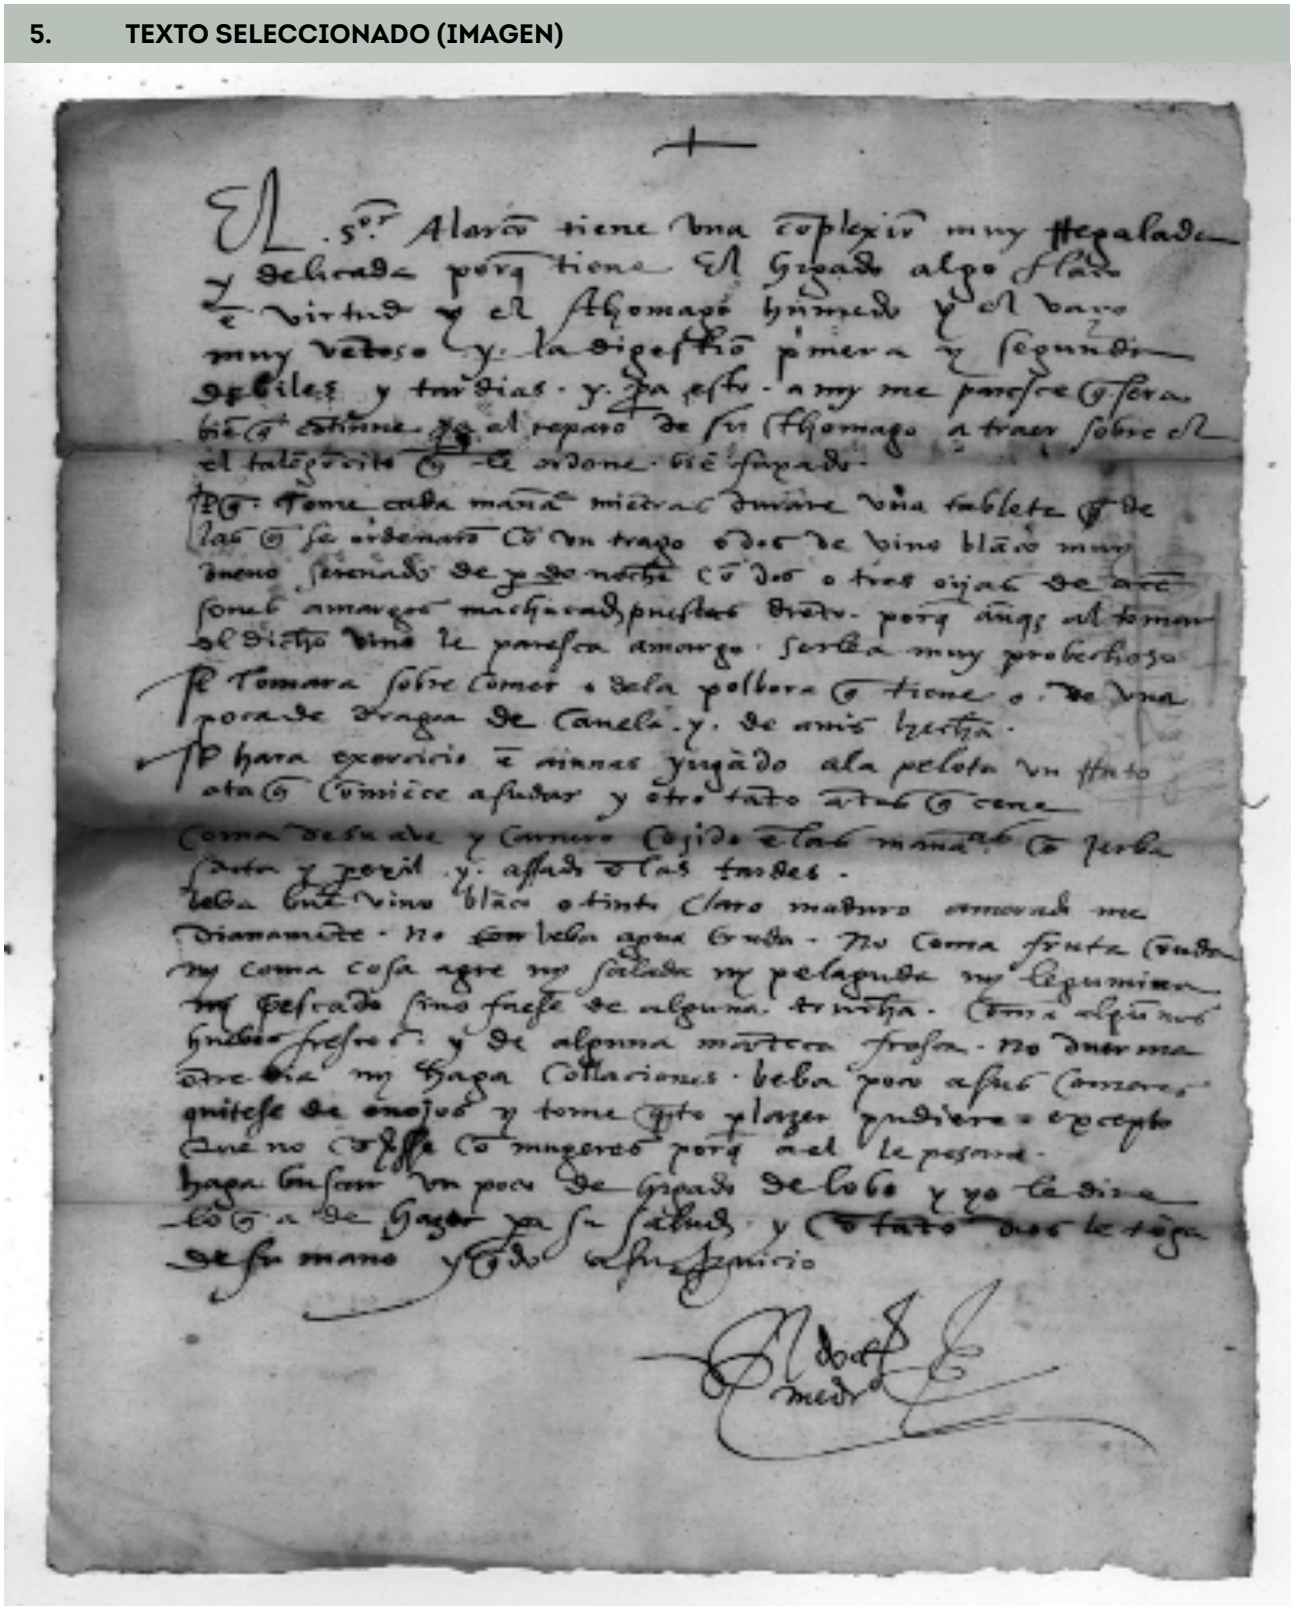 5. TEXTO SELECCIONADO (IMAGEN)
El . s.or Alarcō tiene vna cōplexiō muy rregalada
y delicada porq̄ tiene El hígado algo flaco
ē virtud y el sthomago húmedo y el vaço
muy vētoso y. la digestiō pimera y segunda
debiles y tardias . y. pa esto . a my me paresce q̄ sera
biē q̄ cōtinue pa al reparo de su sthomago a traer sobre el
el talēgōcito q̄ le ordene . biē
q̄ . tome cada mañāa miētras durare vna tableta de
las q̄ se ordenarō Cō vn trago o dos de vino blāco muy
bueno serenado de noche cō dos o tres ojas de acē
sones amargos machucados puestos dēto . porq̄ āuq̄ al tomar
el dicho vino le paresca amargo . serlea muy probechoso
tomara sobre comer o dela polbora q̄ tiene o . de vna
poca de dragea de Canela . y . de anis hecha .
hara exercicio ē aiunas yugādo ala pelota vn rrato
ata q̄ Comiēce a sudar y otro tāto ātes q̄ cene
Coma desu ave y Carnero Cojido ēlas mañāas Cō jerba
sāta y pexil . y . assado ē las tardes .
beba buē vino blāco o tinto Claro maduro amerado me
dianamēte . no beba agua Cruda . No Coma fruta Cruda
ny coma cosa agre ny salada ny pelaguda ny legumina
ny pescado sino fuese de alguna trucha . Coma algunos
huebos frescos . y de alguna māteca fresca . no duerma
ētre dia ny haga Collaciones . beba poco a sus Comeres
quitese de enojos y tome q̄to plazer pudiere o excepto
Que no Cō mugeres porq̄ a el le pesara .
haga buscar vn poco de hígado de lobo y yo le dire
lo q̄ a de hazer pa su salud . y Cō tāto dios le tēga
de su mano y q̄do a su seruicio